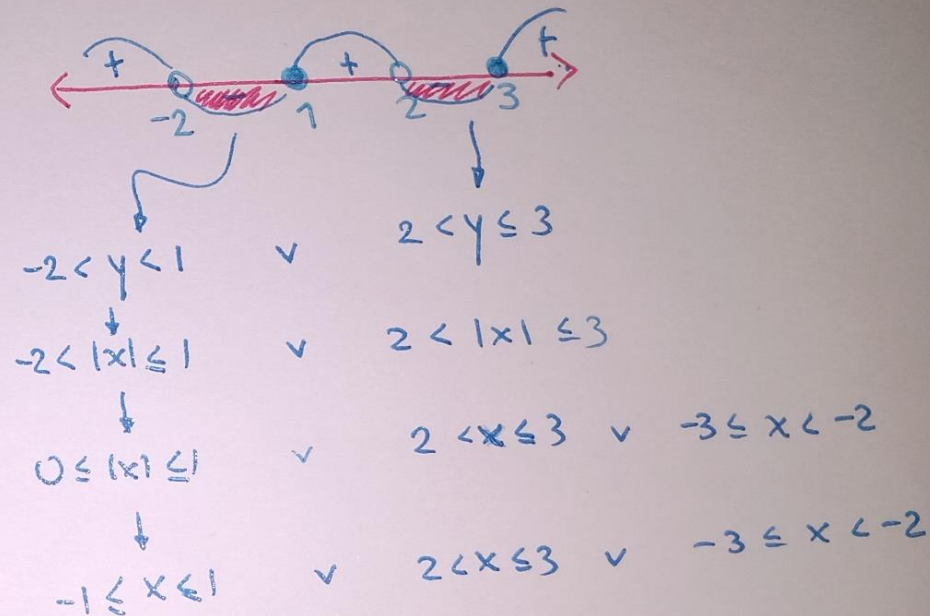 + + +
-2 - 1 2 - 3
-2 < y < 1 v 2 < y ≤ 3
-2 < |x| ≤ 1 v 2 < |x| ≤ 3
0 ≤ |x| ≤ 1 v 2 < x ≤ 3 v -3 ≤ x < -2
-1 ≤ x ≤ 1 v 2 < x ≤ 3 v -3 ≤ x < -2